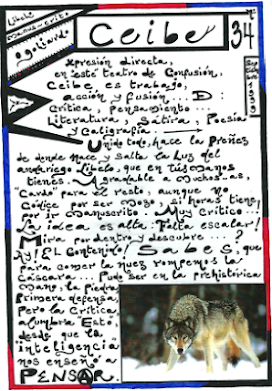 Libelo
manuscrito
agotando
Ceibe
Nº
34
Septiembre 1999
Expresión directa,
en este teatro de Confusión,
Ceibe, es trabajo,
acción y fusión... D:
Crítica, pensamiento...
Literatura, Sátira, Poesía
y Caligrafía:
Unido todo, nace la Preñez
de donde Nace y Salta la Luz del
andariego Libelo, que en tus manos
tienes. Agradable a muchos-as,
"Cardo" para el resto, aunque no
Códice, por ser Mozo, si horas tiene,
por ir manuscrito. Muy Crítico...
La idea es alta: Falta escalar!
Mira por dentro y descubre...?
¡y! El Contenido! Sabes, que
para comer la nuez rompemos la
Cáscara... Pudo ser en la prehistórica
mano, la piedra
Primera defensa,
Pero la Crítica
alumbra Esto,
desde que la
inteligencia
nos enseñó a
PENSAR